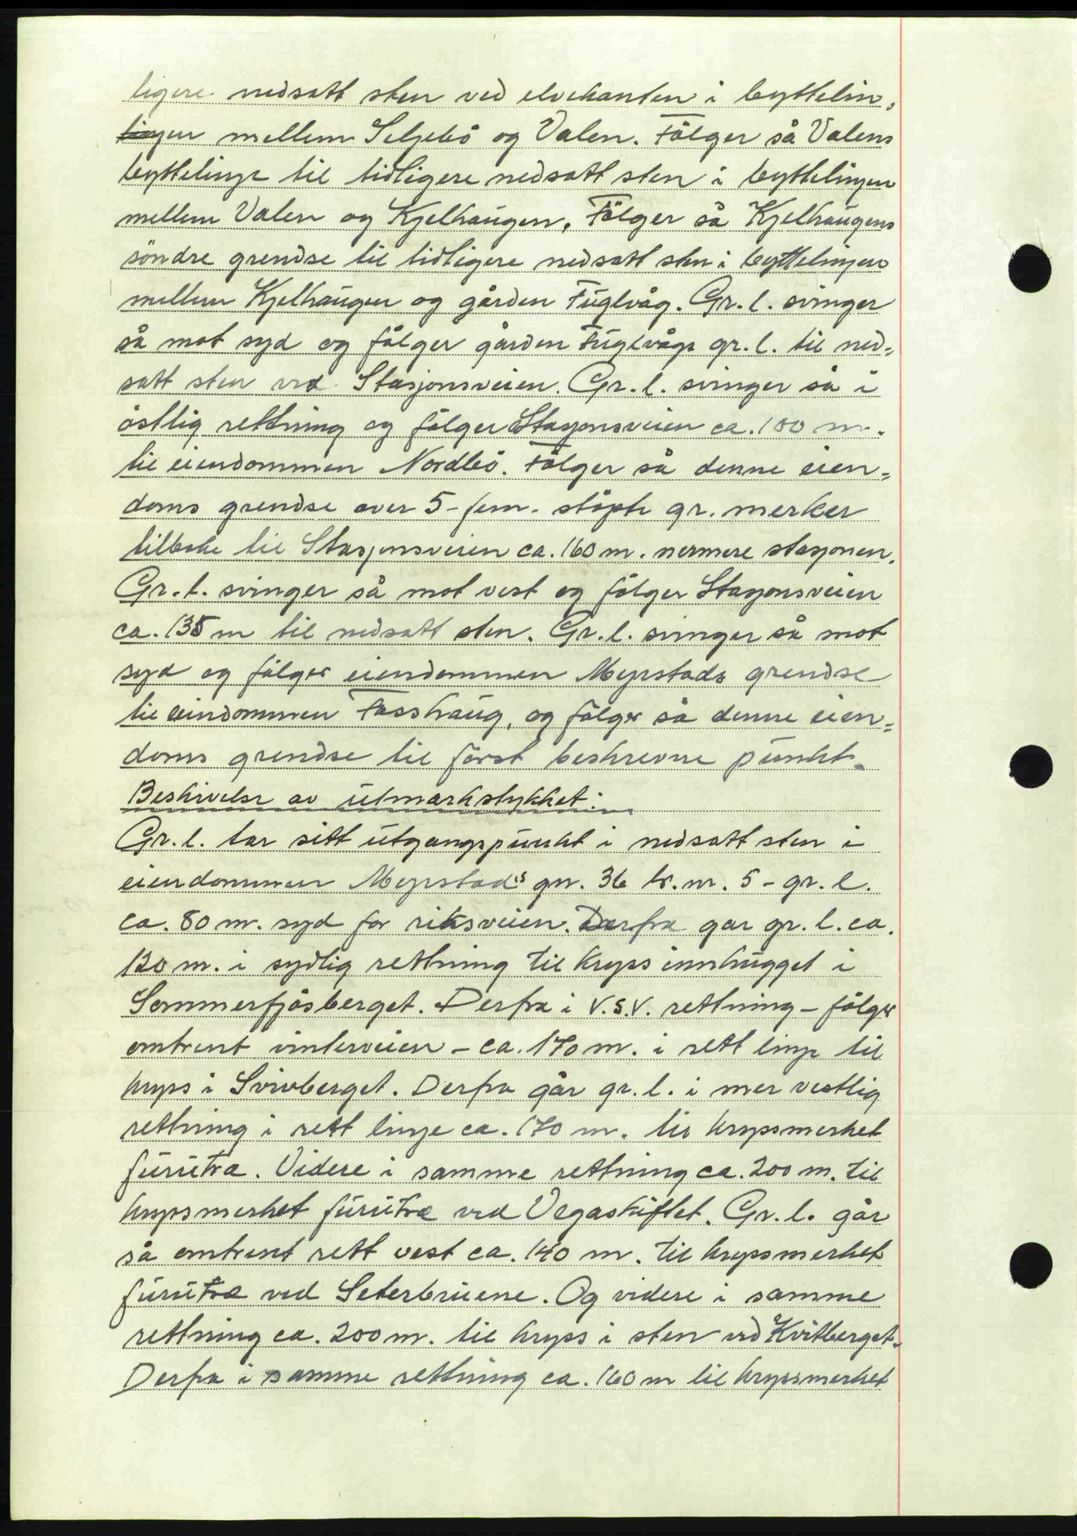 ligere nedsatt sten ved elvekanten i byttelin,
lingen mellem Seljebö og Valen. Fölger så Valens
byttelinje til tidligere nedsatt sten i byttelinjen
mellem Valen og Kjelhaugen. Fölger så Kjelhaugens
söndre grendse til tidligere nedsatt sten i byttelinjen
mellem Kjelhaugen og gården Fuglvåg. Gr. l. svinger
så mot syd og fölger gården Fuglvågs gr. l. til ned=
satt sten ved Stasjonsveien. Gr. l. svinger så i
östlig rettning og fölger Stasjonsveien ca. 100 m.
til eiendommen Nordbö. Fölger så denne eien=
doms grendse over 5 - fem - stöpte gr. merker
tilbake til Stasjonsveien ca. 160 m. nermere stasjonen.
Gr. l. svinger så mot vest og fölger Stasjonsveien
ca. 135 m til nedsatt sten. Gr. l. svinger så mot
syd og fölger eiendommen Myrstads grendse
til eiendommen Fosshaug, og fölger så denne eien=
doms grendse til först beskrevne punkt.
Beskivelse av utmarkstykket:
Gr. l. tar sitt utgangspunkt i nedsatt sten i
eiendommen Myrstads gnr. 36 br. nr. 5 - gr. l.
ca. 80 m. syd for riksveien. Derfra gar gr. l. ca.
130 m. i sydlig rettning til kryss innhugget i
Sommerfjösberget. Derfra i V.S.V. rettning - fölger
omtrent vinterveien - ca. 170 m. i rett linje til
kryss i Svivberget. Derfra går gr. l. i mer vestlig
rettning i rett linje ca. 170 m. til kryssmerket
furutre. Videre i samme rettning ca. 200 m. til
kryssmerket furutre ved Vegaskiftet. Gr. l. går
så omtrent rett vest ca. 140 m. til kryssmerket
furutre ved Seterbruene. Og videre i samme
rettning ca. 200 m. til kryss i sten ved Kvitberget.
Derfra i samme rettning ca. 160 m til kryssmerket